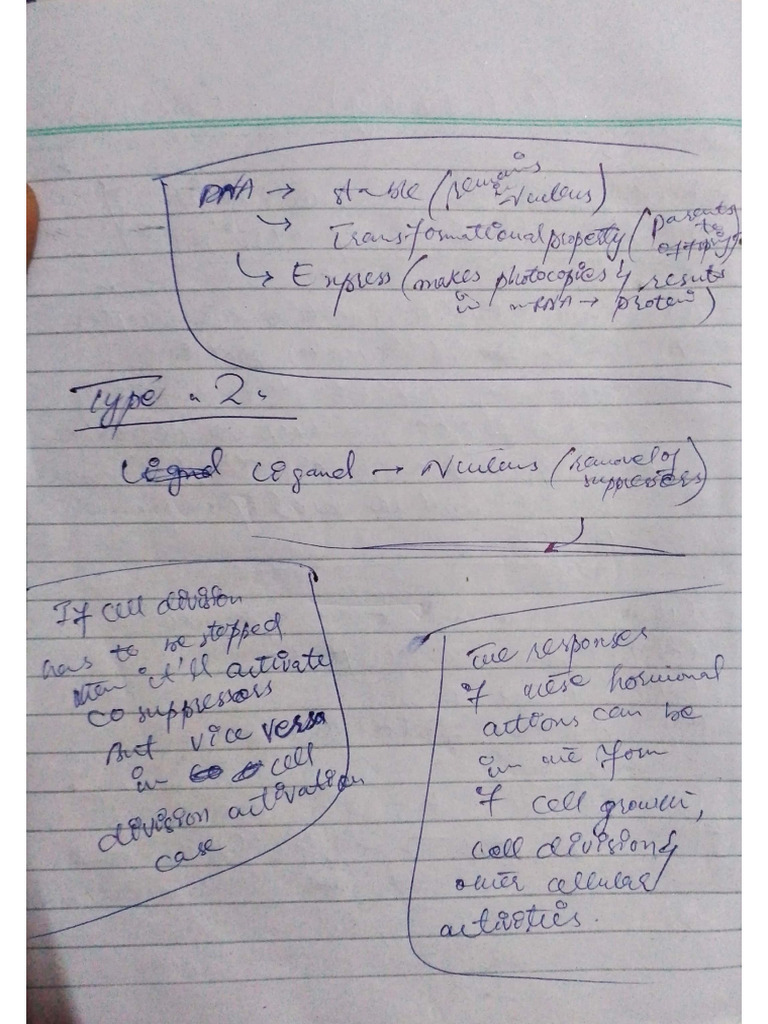 DNA → stable (remains in Nucleus)
↳ Transformational property (parents to offspring)
↳ Express (makes photocopies & results in mRNA → protein)
Type "2"
Ligand → Nucleus (removal of suppressors)
If cell division
has to be stopped
then it'll activate
co suppressors
But vice versa
in cell
division activation
case
The responses
of these hormonal
actions can be
in the form
of cell growth,
cell division &
other cellular
activities.